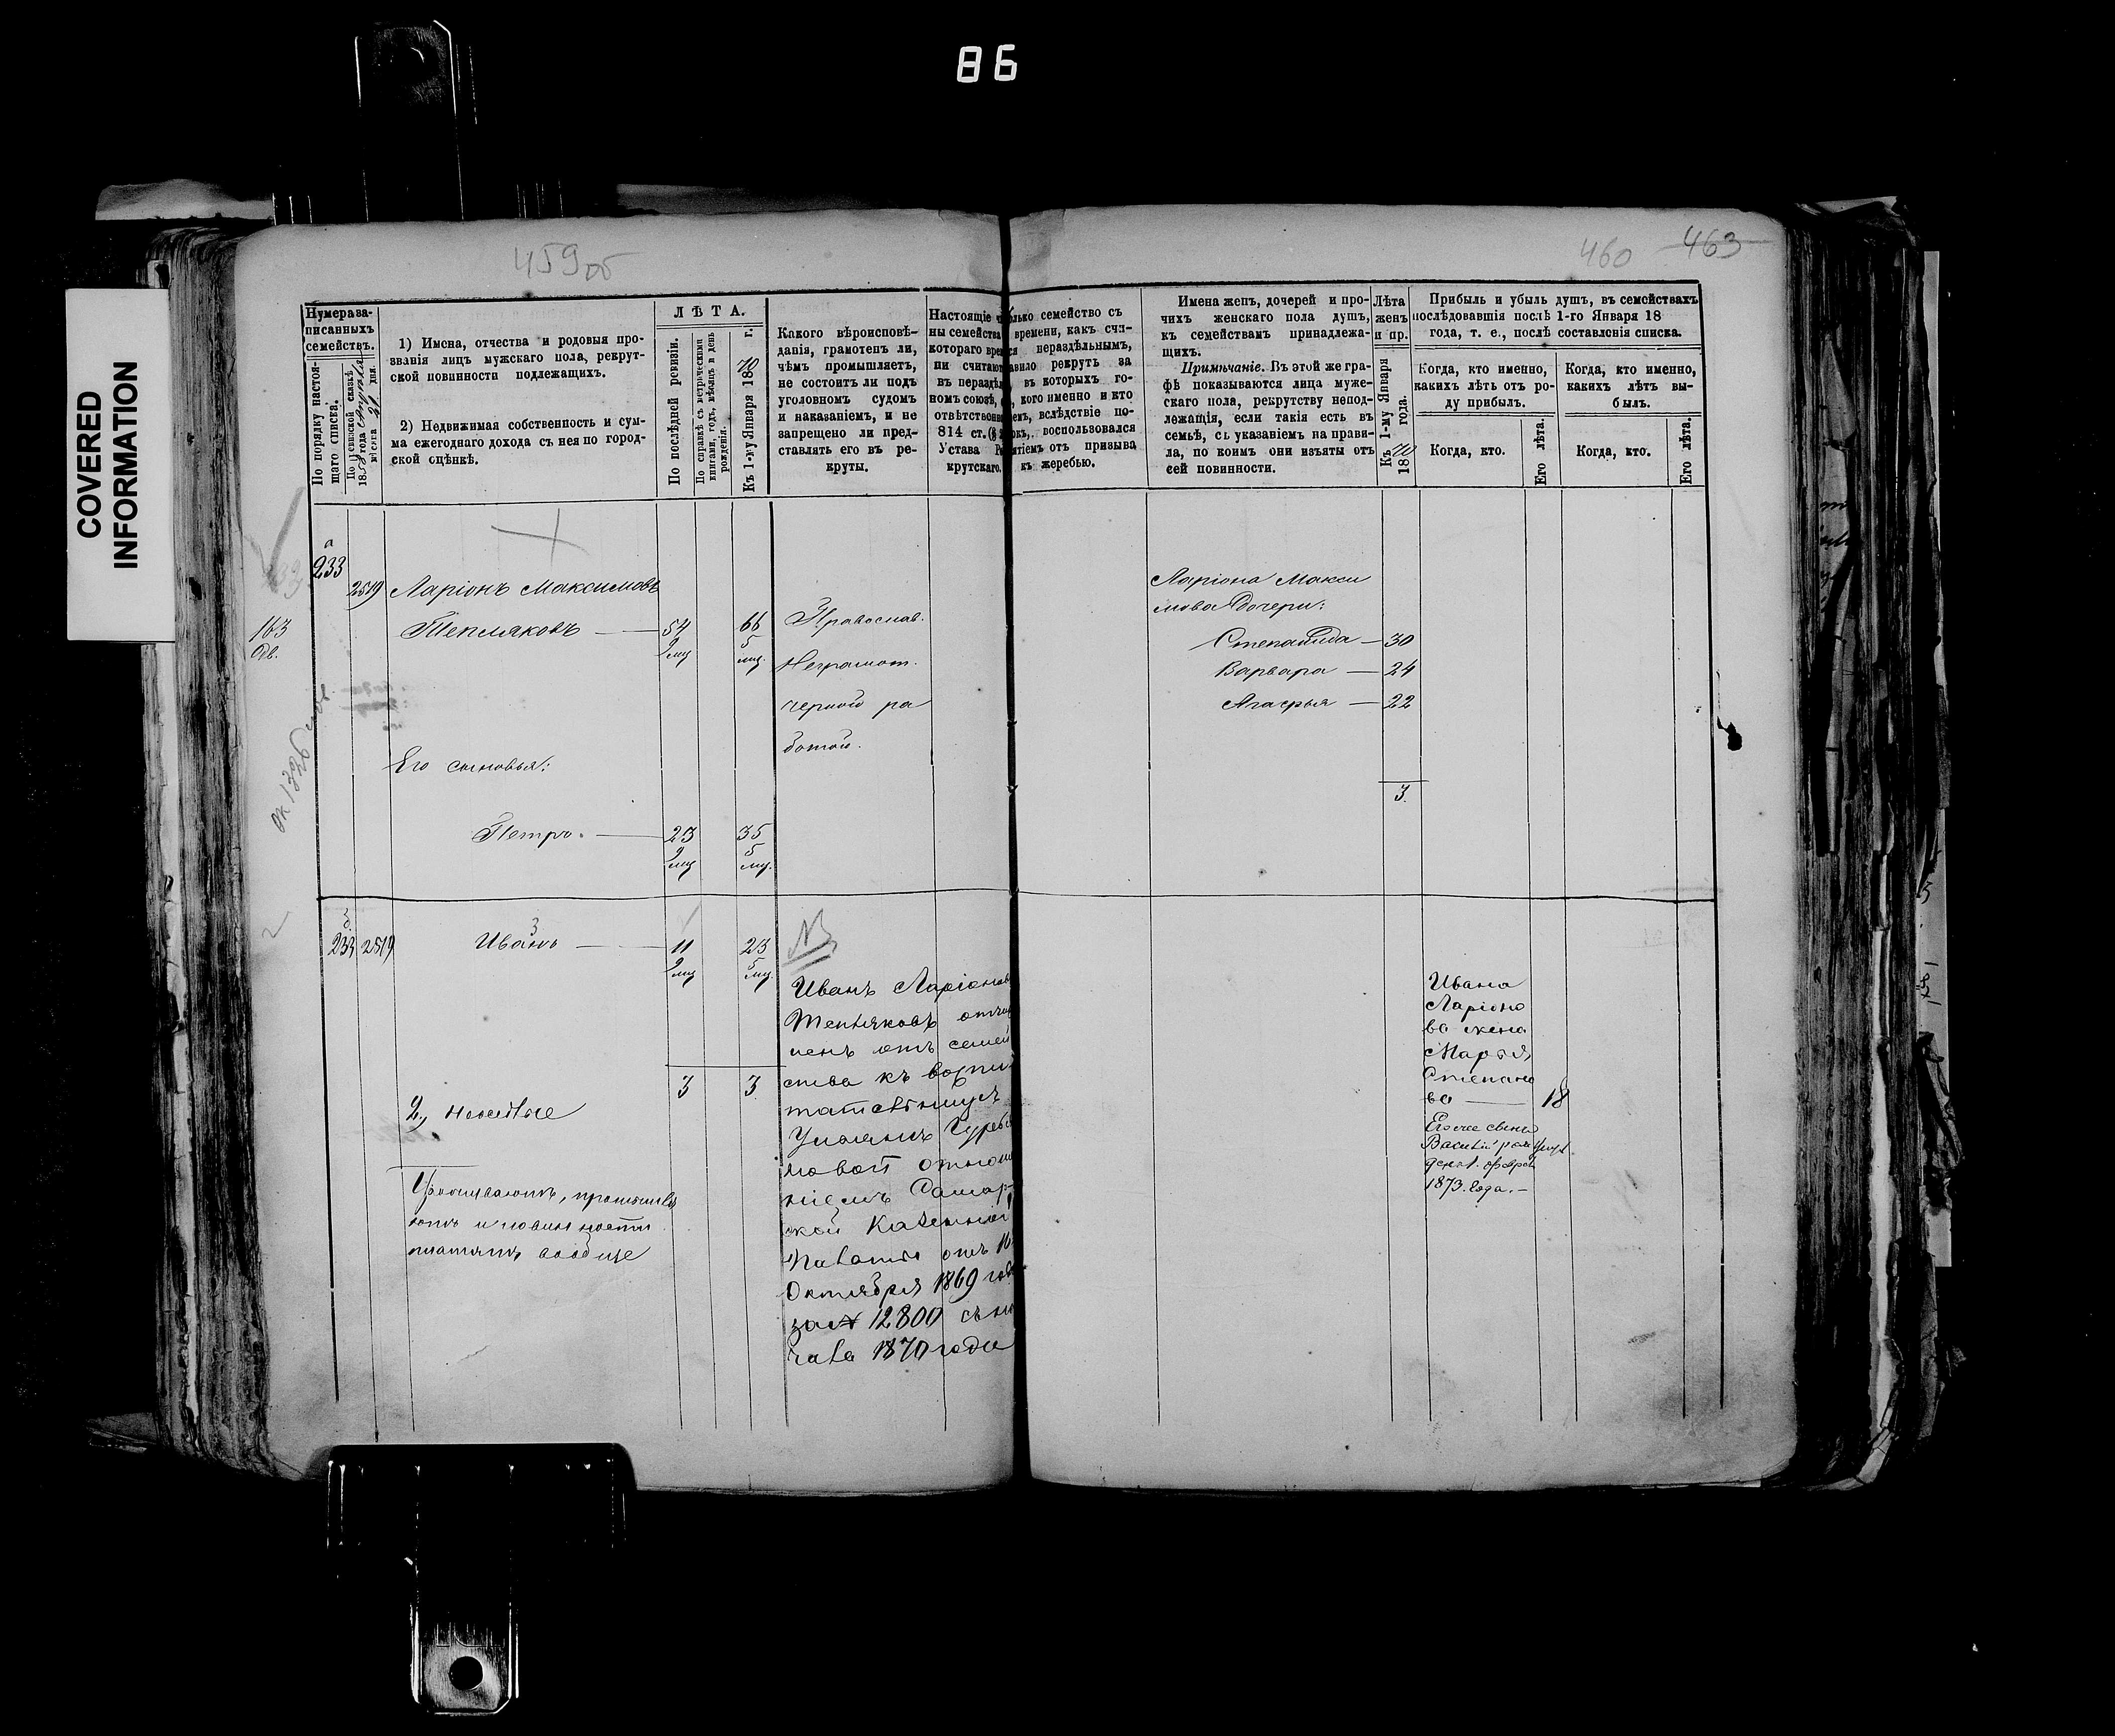 86
COVERED
INFORMATION
459 об
460 463
Нумера за-
писанныхъ
семействъ.
По порядку настоя-
щаго списка.
1) Имена, отчества и родовыя про-
званія лицъ мужскаго пола, рекрут-
ской повинности подлежащихъ.
2) Недвижимая собственность и сум-
ма ежегоднаго дохода съ нея по город-
ской оцѣнкѣ.
ЛѢТА.
По послѣдней ревизіи.
По справкѣ съ метрическими
книгами, годъ, мѣсяцъ и день
рожденія.
Къ 1-му Января 1870 г.
Какого вѣроисповѣ-
данія, грамотенъ ли,
чѣмъ промышляетъ,
не состоитъ ли подъ
уголовномъ судомъ
и наказаніемъ, и не
запрещено ли пред-
ставлять его въ ре-
круты.
Настоящіе
ны семейства
котораго
ни считают
въ нераздѣл
номъ союзѣ,
отвѣтственно
814 ст.
Устава
крутскаго.
только семейство съ
времени, какъ счи-
нераздѣльнымъ,
рекрутъ за
въ которыхъ го-
кого именно и кто
вслѣдствіе по-
воспользовался
отъ призыва
къ жеребью.
Имена женъ, дочерей и про-
чихъ женскаго пола душъ,
къ семействамъ принадлежа-
щихъ.
Примѣчаніе. Въ этой же гра-
фѣ показываются лица муже-
скаго пола, рекрутству непод-
лежащія, если такія есть въ
семьѣ, съ указаніемъ на прави-
ла, по коимъ они изъяты отъ
сей повинности.
Лѣта
женъ
и пр.
Къ 1-му Января
1870 года.
Прибыль и убыль душъ, въ семействахъ
послѣдовавшія послѣ 1-го Января 18
года, т. е., послѣ составленія списка.
Когда, кто именно,
какихъ лѣтъ отъ ро-
ду прибылъ.
Когда, кто именно,
какихъ лѣтъ вы-
былъ.
Когда, кто.
Его лѣта.
Когда, кто.
Его лѣта.
а
233
2519 Ларіонъ Максимовъ
163 Тепляковъ — 54 66
9 мц 5 мц.
Православ.
Неграмот.
черной ра
ботой.
Ларіона Макси
мова Дочери:
Степанида — 30
Варвара — 24
Агафья — 22
3.
Его сыновья:
Петръ. — 23 35
9 мц 5 мц.
233 2519 Иванъ — 11 23
9 мц 5 мц.
3 3
Иванъ Ларіонов
Тепляковъ
ченъ отъ семей
ства къ
Ульянѣ
новой отноше
ніемъ Самар-
ской Казенной
Палаты отъ 16
Октября 1869 года
за № 12800 съ на
чала 1870 года
2, неимѣіе
Проживаютъ, промышля
ютъ и повинности
платятъ вообще
Ивана
Ларіоно
ва жена
Марья
Степано
ва — 18
Его же сынъ
Василій
1873. года. —